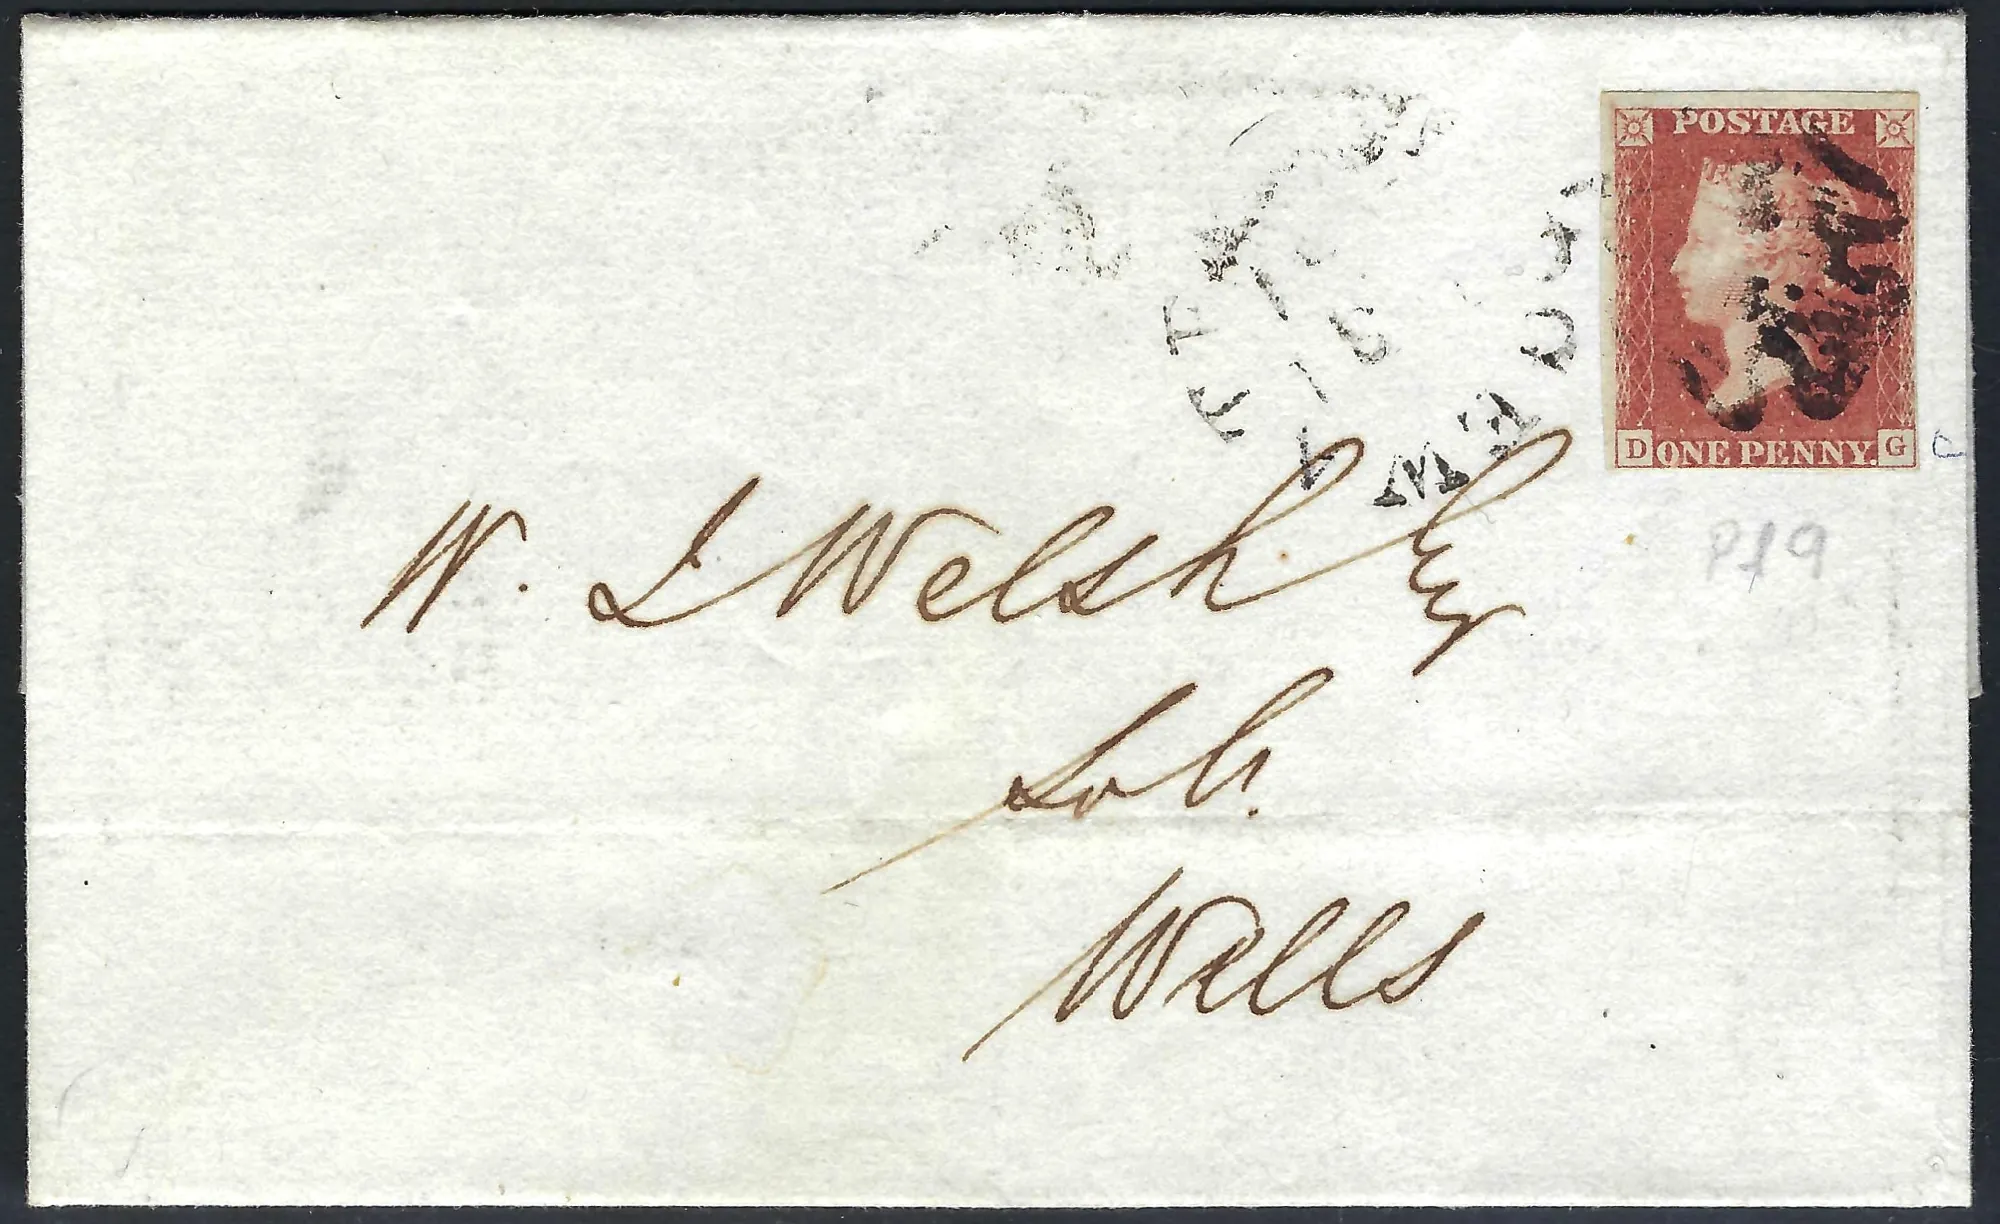 POSTAGE
D ONE PENNY. G
W. L Welsh Esq
Solr.
Wells